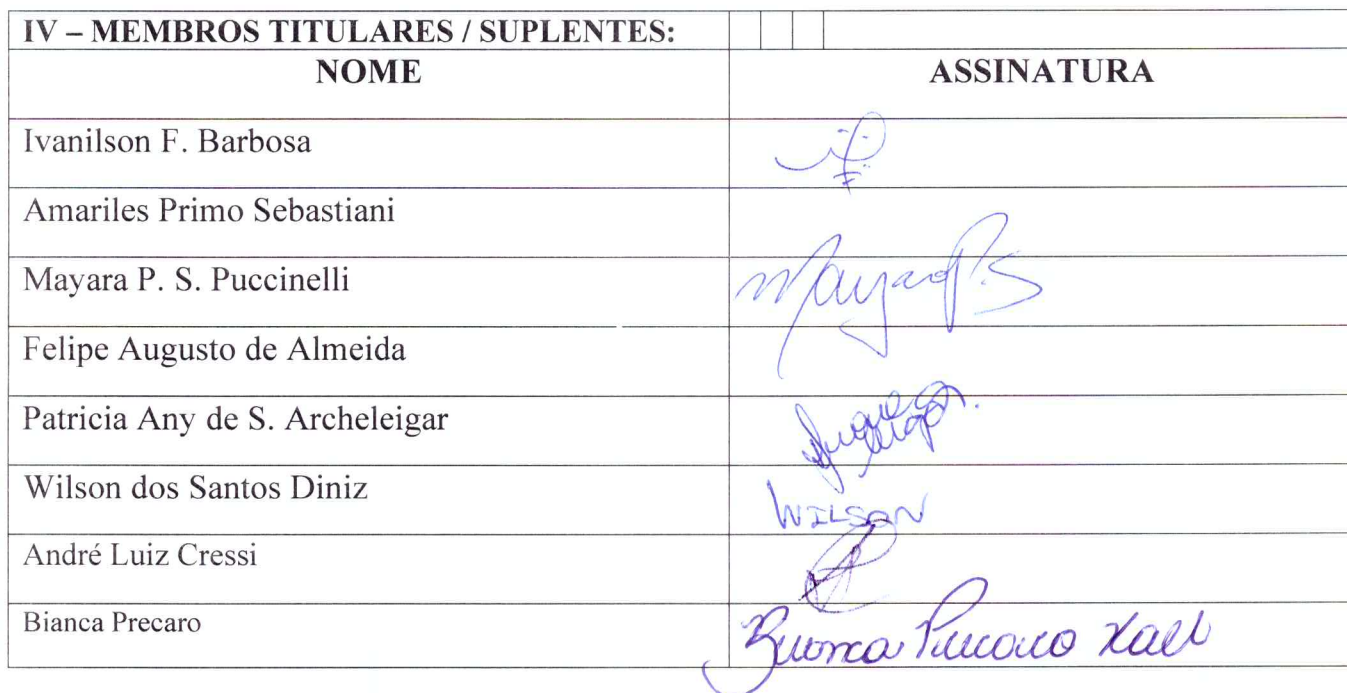 IV – MEMBROS TITULARES / SUPLENTES:
NOME ASSINATURA
Ivanilson F. Barbosa
Amariles Primo Sebastiani
Mayara P. S. Puccinelli Mayara P.S
Felipe Augusto de Almeida
Patricia Any de S. Archeleigar
Wilson dos Santos Diniz WILSON
André Luiz Cressi
Bianca Precaro Bianca Precaro